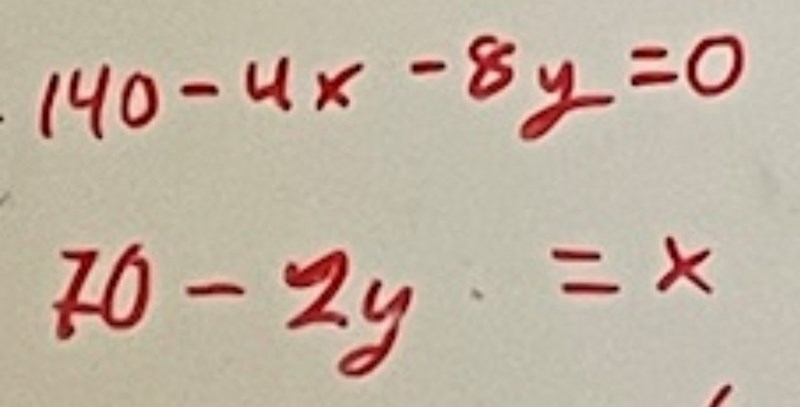 140 - 4x - 8y = 0
70 - 2y = x